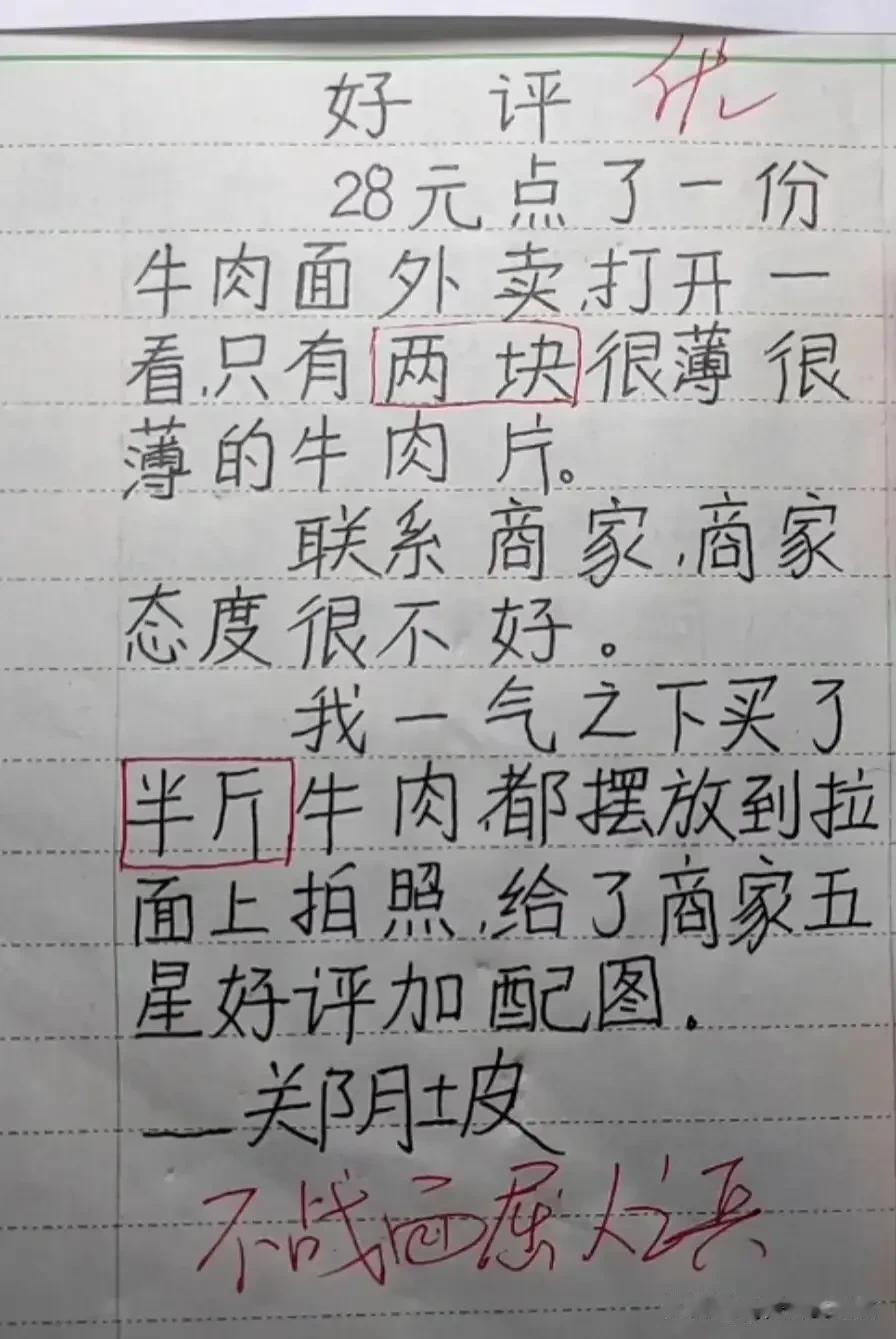 好评 优
28元点了一份
牛肉面外卖,打开一
看,只有两块很薄很
薄的牛肉片。
联系商家,商家
态度很不好。
我一气之下买了
半斤牛肉,都摆放到拉
面上拍照,给了商家五
星好评加配图.
—郑阴坡
不战而屈人之兵